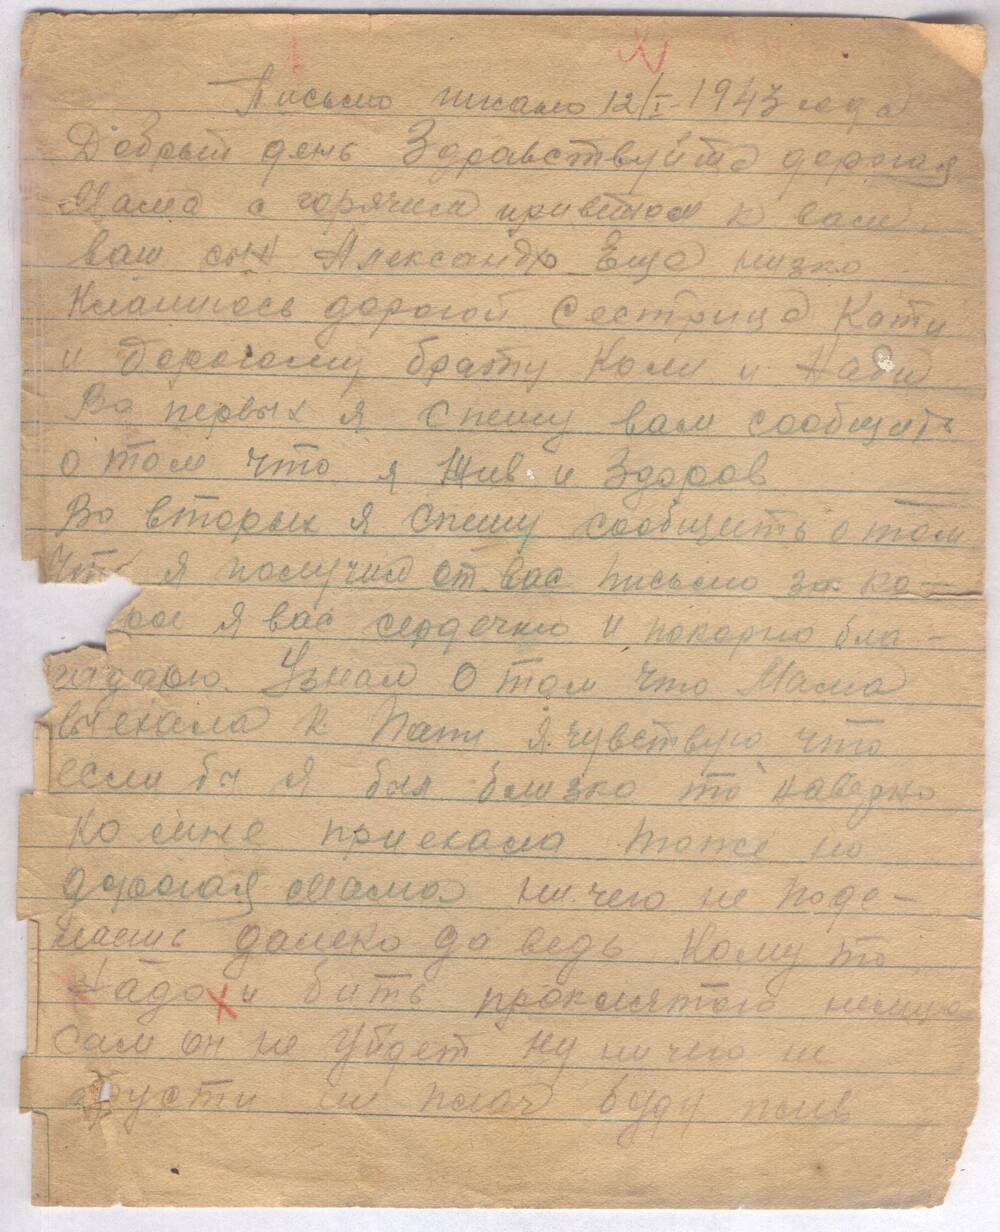 Письмо писано 12/I-1943 года
Добрый день Здравствуйте дорогая
Мама с горячим приветом к вам
ваш сын Александр Еще низко
Кланиюсь дорогой Сестрице Кати
и дорогому брату Коли и
Во первых я спешу вам сообщить
о том что я Жив и Здоров
Во вторых я спешу сообщить о том
что я получил от вас письмо за ко-
рое я вас сердечно и покорно бла-
гадарю. Узнал о том что Мама
выехала к Папи я чувствую что
если бы я был близко то наверно
ко мне приехала тоже но
дорогая мама ни чего не поде-
лаешь далеко да ведь кому то
Надо и бить проклятого немца
сам он не уйдет ну ни чего не
грусти не плач буду жив